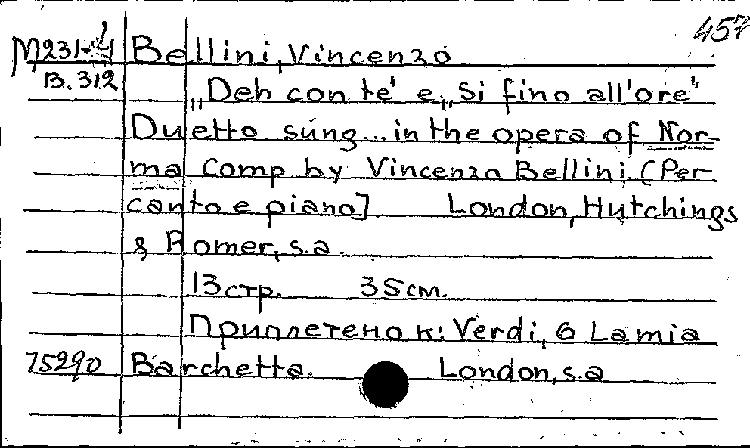 457
M231-4 Bellini, Vincenzo
B.312
„Deh con te" e „Si fino all'ore"
Duetto sung... in the opera of Nor-
ma Comp by Vincenzo Bellini. (Per
canto e piano] London, Hutchings
& Romer, s.a.
13 стр. 35 см.
Приплетено к: Verdi, G La mia
75290 Barchetta. London, s.a